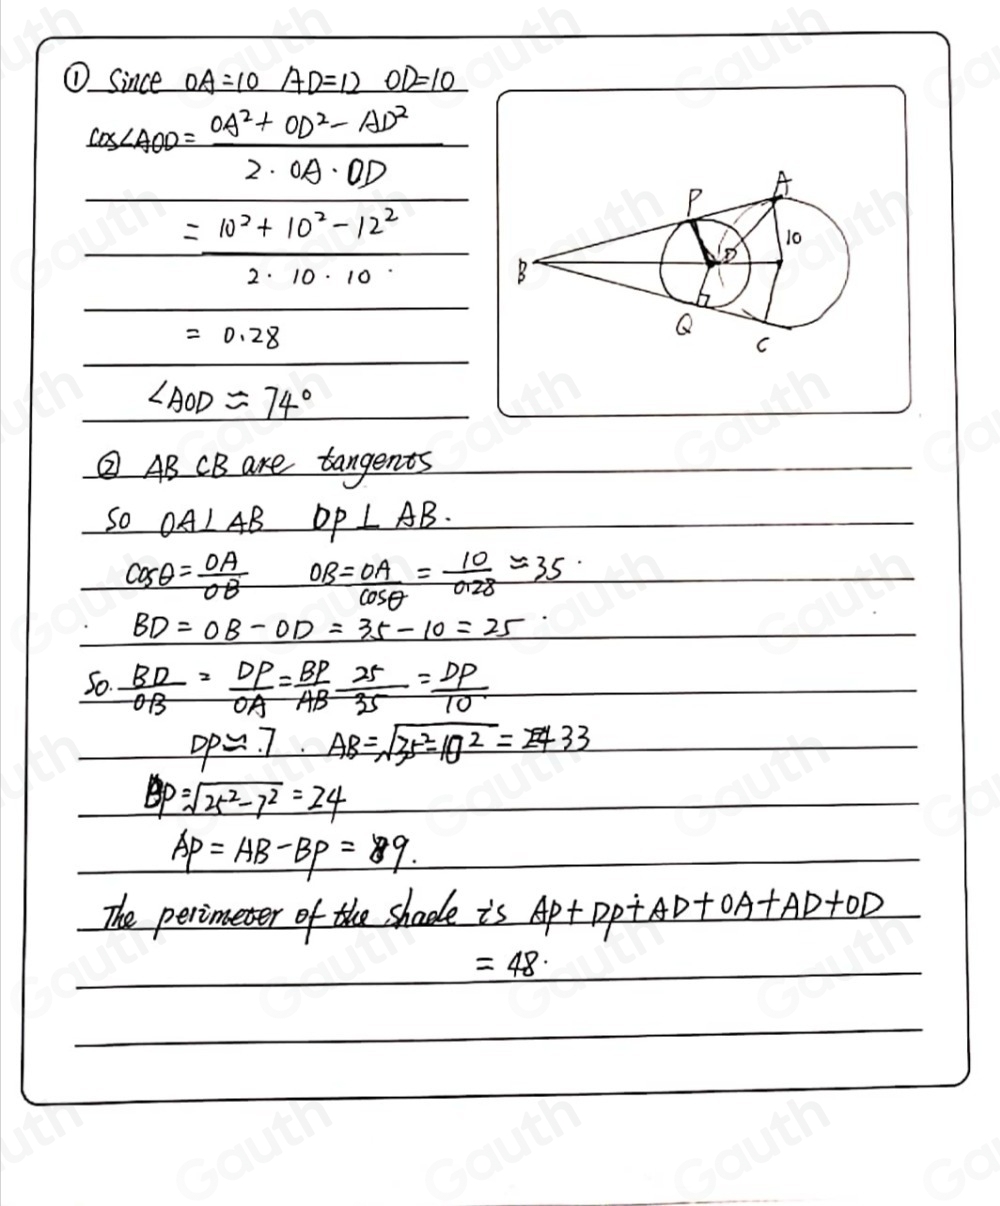 ① Since OA=10 AD=12 OD=10
cos∠AOD = (OA²+OD²-AD²)/(2·OA·OD)
= (10²+10²-12²)/(2·10·10)
= 0.28
∠AOD ≈ 74°
P
A
10
B
D
Q
C
② AB CB are tangents
So OA⊥AB DP⊥AB.
cosθ = OA/OB OB = OA/cosθ = 10/0.28 ≈ 35
BD = OB - OD = 35 - 10 = 25
So. BD/OB = DP/OA = BP/AB 25/35 = DP/10
DP ≈ 7. AB = √(35²-10²) = 33
BP = √(25²-7²) = 24
AP = AB - BP = 9.
The perimeter of the shade is AP+DP+AD+OA+AD+OD
= 48.
Gauth